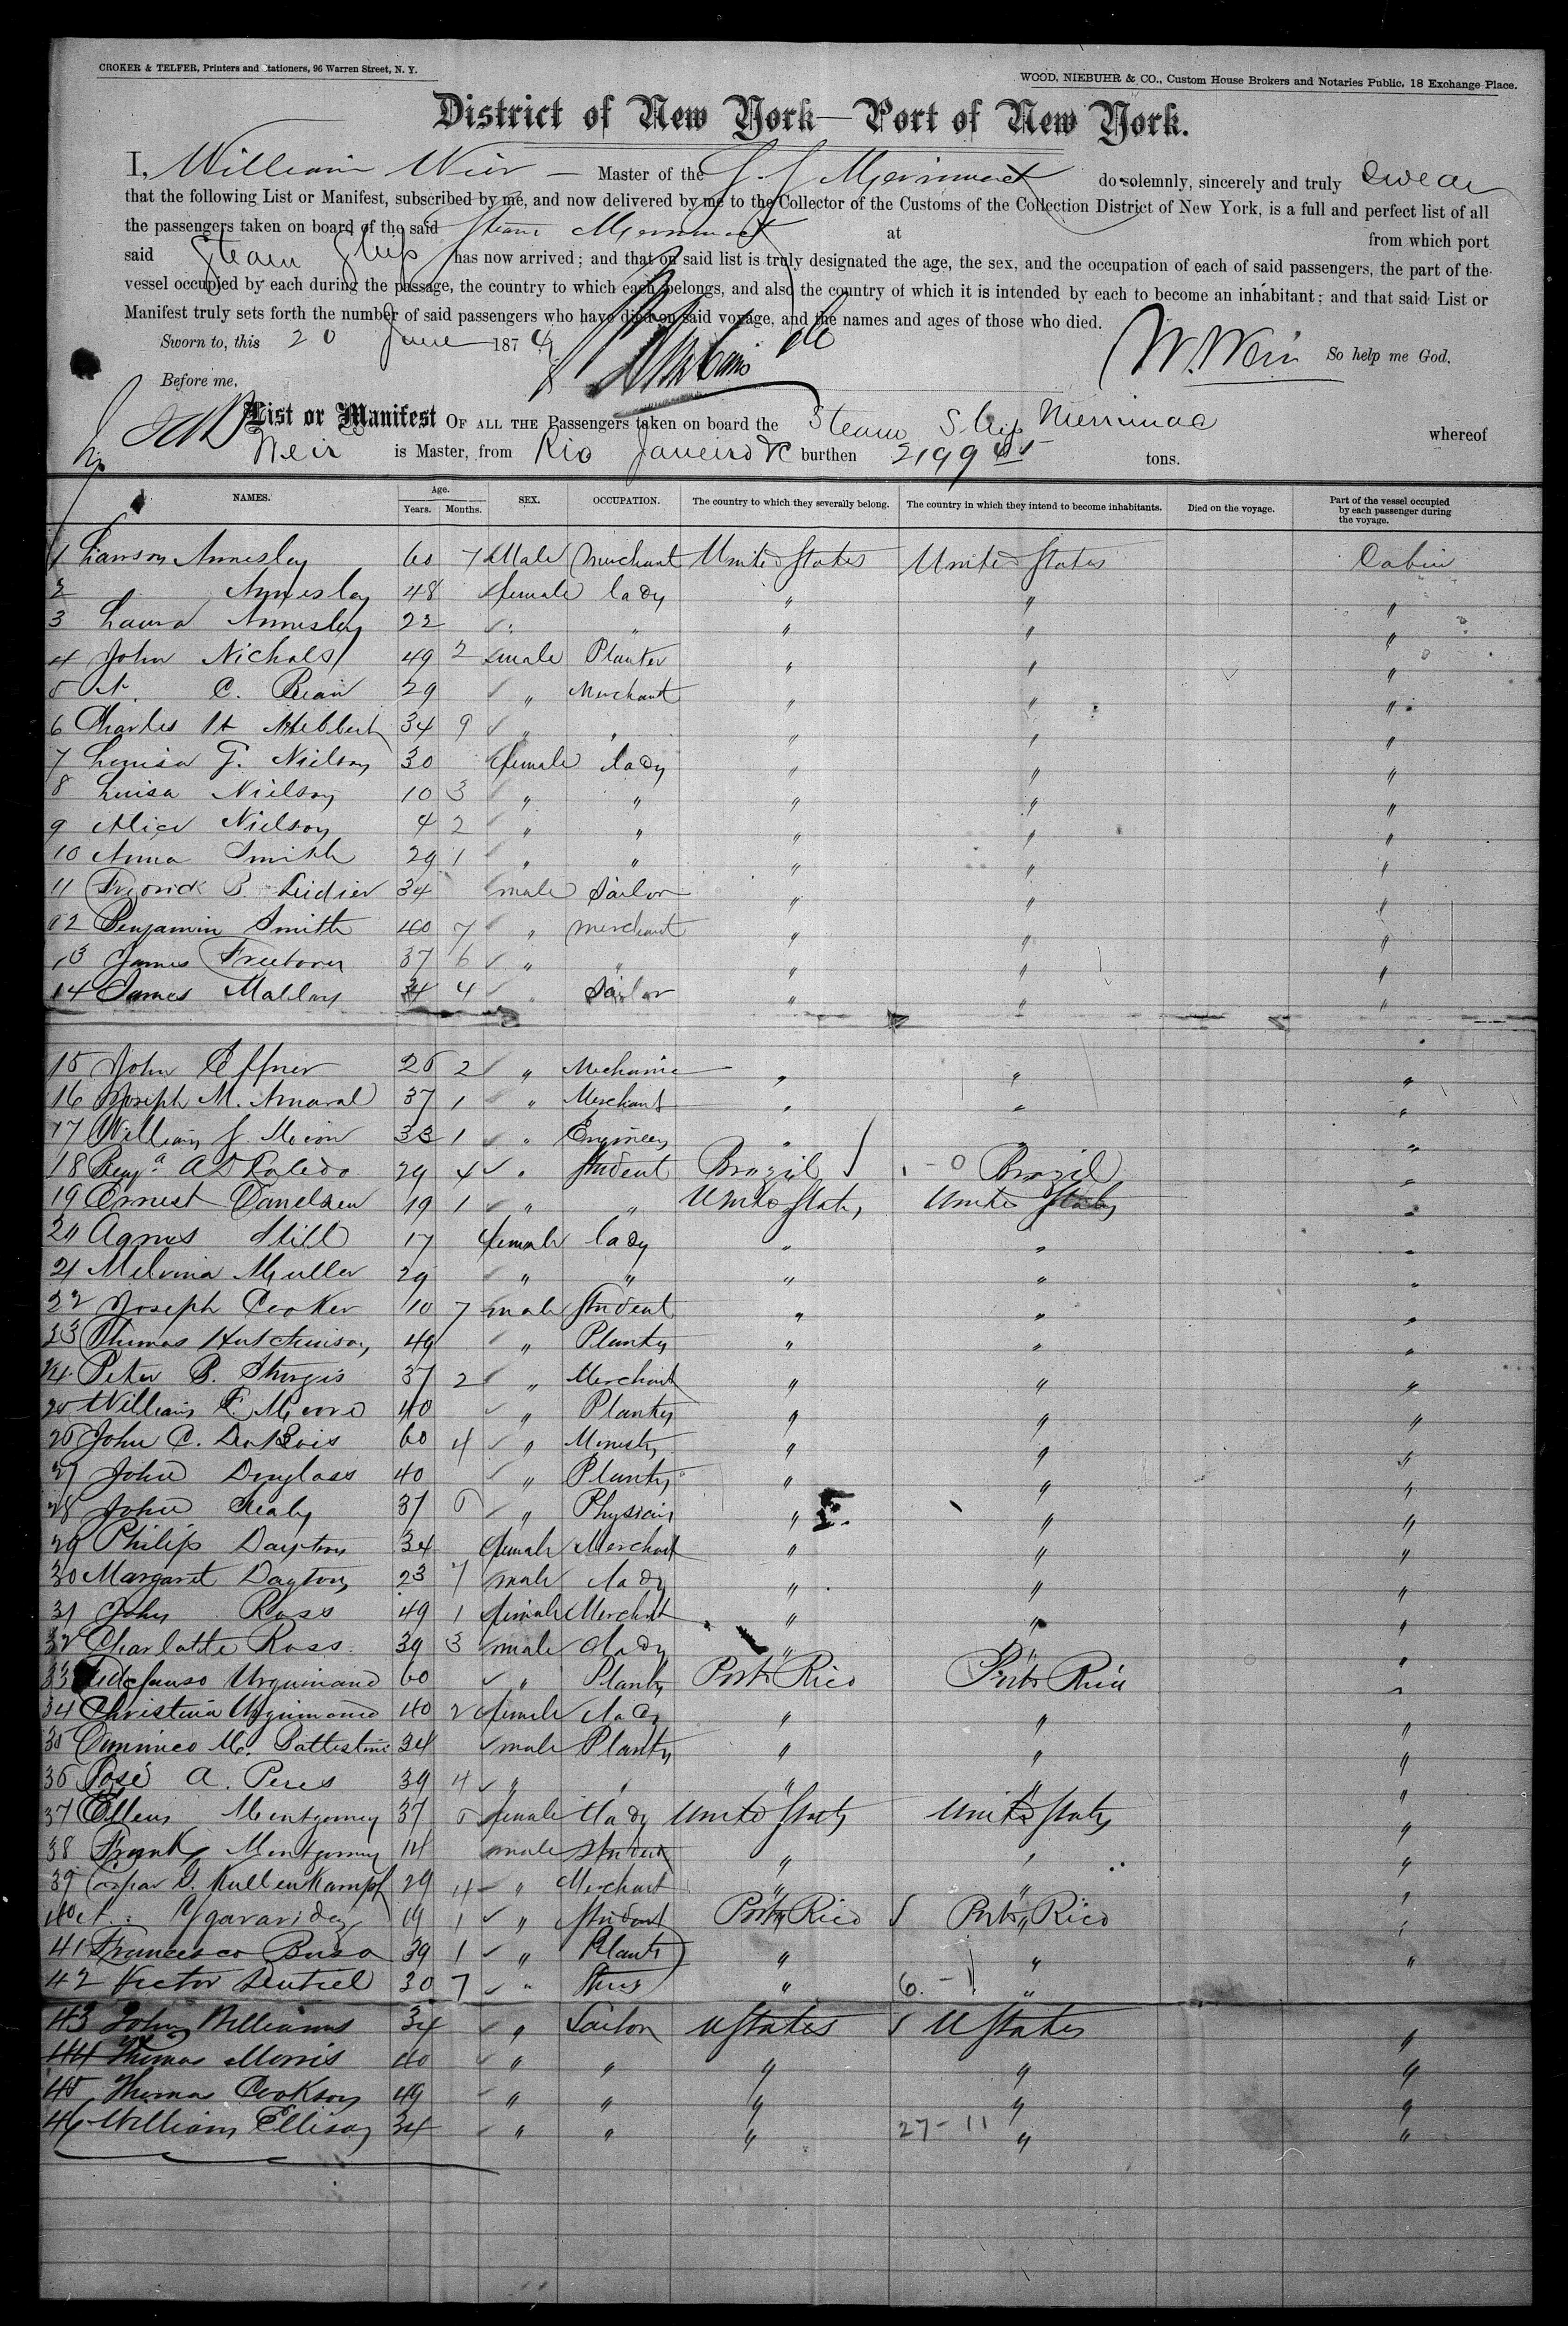 CROKER & TELFER, Printers and Stationers, 96 Warren Street, N. Y.
WOOD, NIEBUHR & CO., Custom House Brokers and Notaries Public, 18 Exchange Place.
District of New York—Port of New York.
I, William Weir — Master of the S. S. Merrimack do solemnly, sincerely and truly swear
that the following List or Manifest, subscribed by me, and now delivered by me to the Collector of the Customs of the Collection District of New York, is a full and perfect list of all
the passengers taken on board of the said Steam Merrimack at from which port
said Steam Ship has now arrived; and that on said list is truly designated the age, the sex, and the occupation of each of said passengers, the part of the
vessel occupied by each during the passage, the country to which each belongs, and also the country of which it is intended by each to become an inhabitant; and that said List or
Manifest truly sets forth the number of said passengers who have died on said voyage, and the names and ages of those who died.
Sworn to, this 20 June 1874
W. Weir So help me God.
Before me,
List or Manifest OF ALL THE Passengers taken on board the Steam Ship Merrimac whereof
Weir is Master, from Rio Janeiro &c burthen 2199 tons.
NAMES. Age. Years. Months. SEX. OCCUPATION. The country to which they severally belong. The country in which they intend to become inhabitants. Died on the voyage. Part of the vessel occupied by each passenger during the voyage.
1 Lawson Annesley 60 7 Male Merchant United States United States Cabin
2 Annesley 48 female lady " " "
3 Laura Annesley 22 " " " "
4 John Nichols 49 2 male Planter " " "
5 C. Bean 29 " Merchant " " "
6 Charles H 34 9 " " " " "
7 Louisa G. Nielson 30 female lady " " "
8 Luisa Nielson 10 3 " " " " "
9 Alice Nielson 4 2 " " " " "
10 Anna Smith 29 1 " " " " "
11 Fredrick B. 34 male Sailor " " "
12 Benjamin Smith 40 7 " merchant " " "
13 James Freeborn 37 6 " " " " "
14 James Mallory 34 4 " Sailor " " "
15 John Effner 25 2 " Mechanic " " "
16 Joseph M. Amaral 37 1 " Merchant " " "
17 William J. 33 1 " Engineer " "
18 Benja. A D Toledo 29 4 " Student Brazil Brazil "
19 Ernest Danelsen 19 1 " " United States United States "
20 Agnes Still 17 female lady " " "
21 Melvina Muller 29 " " " " "
22 Joseph Cooker 10 7 male Student " " "
23 Thomas Hutchinson 49 " Planter " " "
24 Peter B. Sturgis 37 2 " Merchant " " "
25 William F. Moore 40 " Planter " " "
26 John C. DuBois 60 4 " Minister " " "
27 John Douglass 40 " Planter " " "
28 John Healy 37 5 " Physician " " "
29 Philip Dayton 34 female Merchant " " "
30 Margaret Dayton 23 7 male Lady " " "
31 John Ross 49 1 female Merchant " " "
32 Charlotte Ross 39 3 male Lady " " "
33 60 " Planter Porto Rico Porto Rico "
34 Christina 40 2 female Lady " " "
35 M. Battestini 34 male Planter " " "
36 José A. Peres 39 4 " " " " "
37 Ellen Montgomery 37 5 female Lady United States United States "
38 Frank Montgomery 14 male Student " " "
39 Caspar G. Kullenkampf 29 4 " Merchant " " "
40 A. Ygaravidez 19 1 " Student Porto Rico Porto Rico "
41 Francesco Buso 39 1 " Planter " " "
42 Victor 30 7 " " 6 - 1 "
43 John Williams 34 " Sailor U States U States "
44 Thomas Morris 40 " " " " "
45 Thomas Cookson 49 " " " " "
46 William Ellison 34 " " " 27 - 11 " "